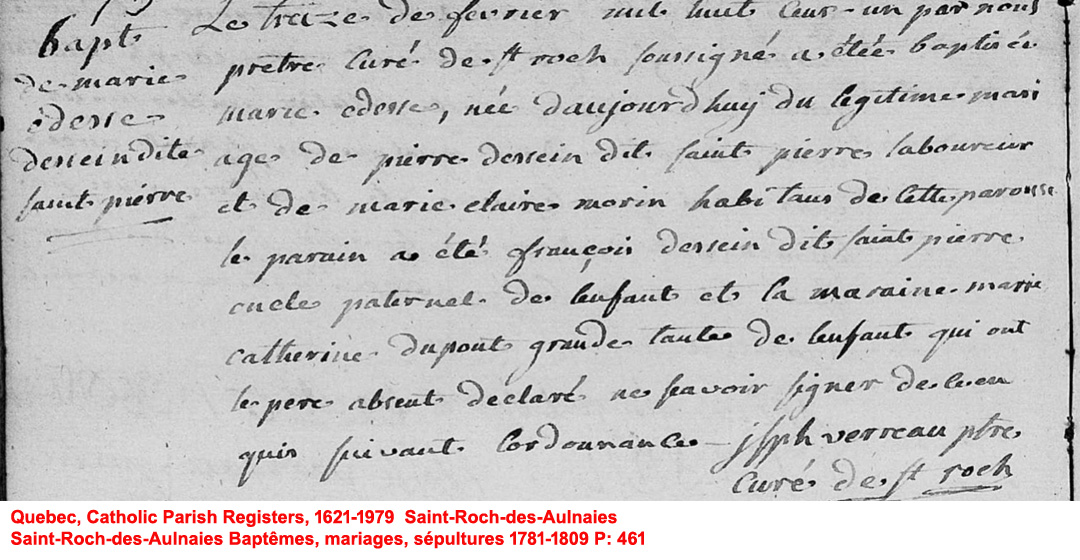 bapt
de marie
edesse
dessein dite
saint pierre
Le treize de fevrier mil huit cens-un par nous
prêtre curé de st roch soussigné a étée baptisée
marie edesse, née daujourdhuy du legitime mari
age de pierre dessein dit saint pierre laboureur
et de marie claire morin habitans de cette paroisse
le parain a été françois dessein dit saint pierre
oncle paternel de lenfant et la maraine marie
catherine dupont grande tante de lenfant qui ont
le pere absent declaré ne savoir signer de ce en
quis suivant lordonnance - jsph verreau ptre
curé de st roch
Quebec, Catholic Parish Registers, 1621-1979 Saint-Roch-des-Aulnaies
Saint-Roch-des-Aulnaies Baptêmes, mariages, sépultures 1781-1809 P: 461